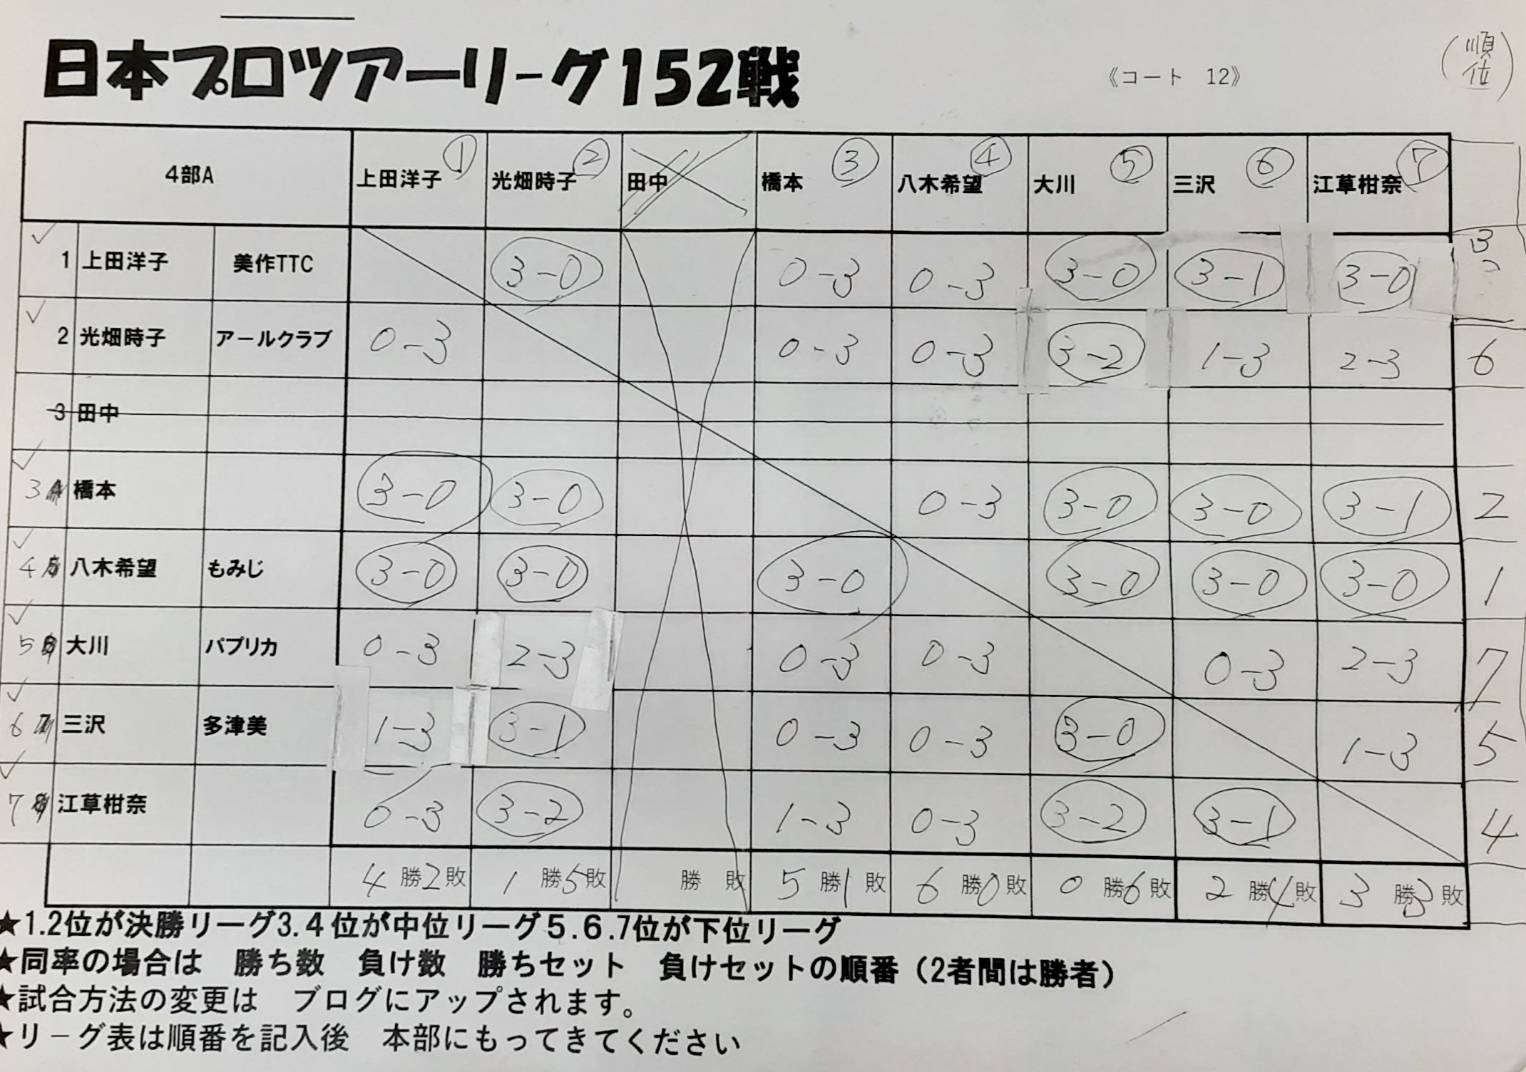 日本プロツアーリーグ152戦 《コート 12》 (順位)
4部A 上田洋子 ① 光畑時子 ② 田中 橋本 ③ 八木希望 ④ 大川 ⑤ 三沢 ⑥ 江草柑奈 ⑦
1 上田洋子 美作TTC 3-0 0-3 0-3 3-0 3-1 3-0 3
2 光畑時子 アールクラブ 0-3 0-3 0-3 3-2 1-3 2-3 6
3 田中
3 橋本 3-0 3-0 0-3 3-0 3-0 3-1 2
4 八木希望 もみじ 3-0 3-0 3-0 3-0 3-0 3-0 1
5 大川 パプリカ 0-3 2-3 0-3 0-3 0-3 2-3 7
6 三沢 多津美 1-3 3-1 0-3 0-3 3-0 1-3 5
7 江草柑奈 0-3 3-2 1-3 0-3 3-2 3-1 4
4勝2敗 1勝5敗 勝 敗 5勝1敗 6勝0敗 0勝6敗 2勝4敗 3勝3敗
★1.2位が決勝リーグ3.4位が中位リーグ5.6.7位が下位リーグ
★同率の場合は 勝ち数 負け数 勝ちセット 負けセットの順番（2者間は勝者）
★試合方法の変更は ブログにアップされます。
★リーグ表は順番を記入後 本部にもってきてください